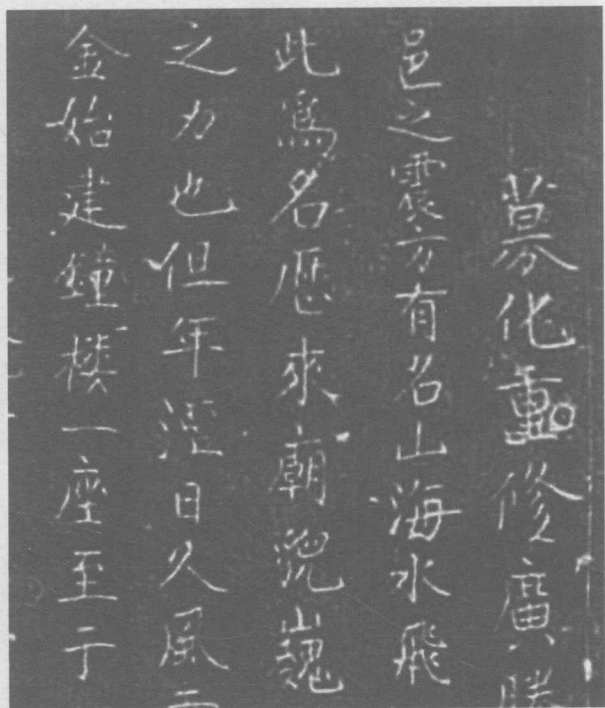 募化重修廣勝
邑之震方有名山海水飛
此為名歷來廟貌巍
之力也但年湮日久風
金始建鐘樓一座至于